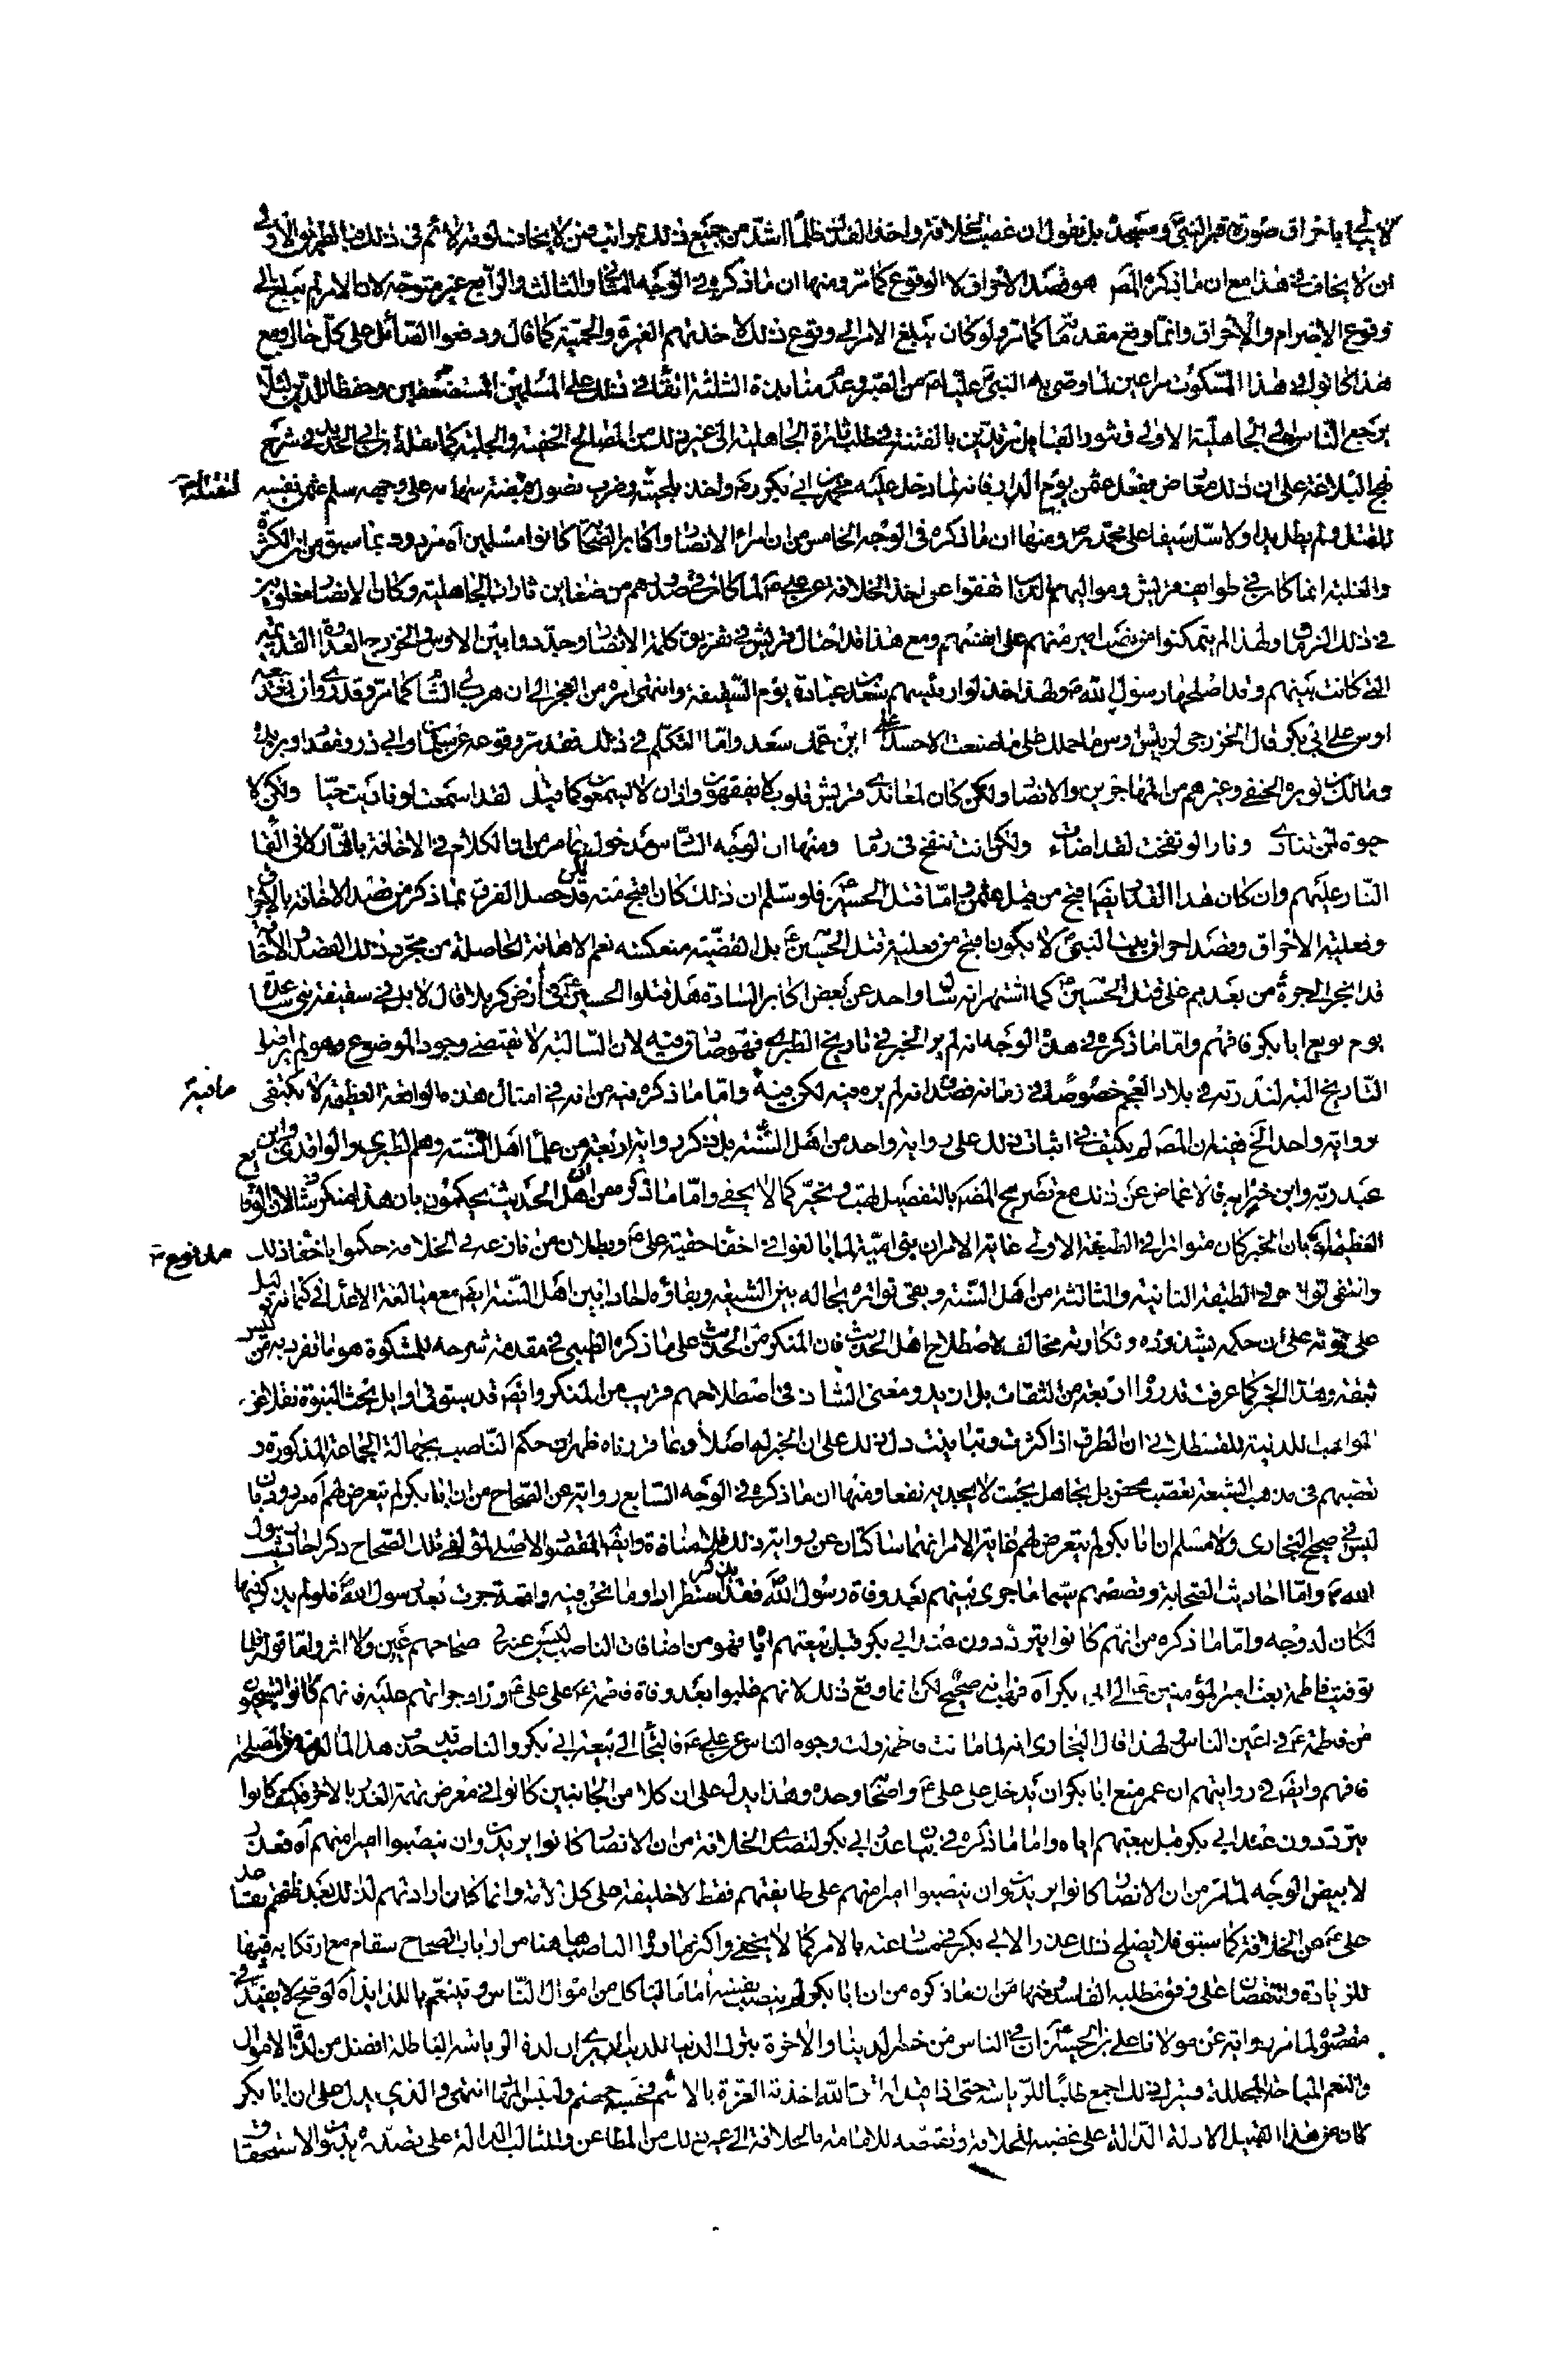 لا يبالي باحراق صورة قبر النبي ومسجده بل نقول ان غصب الخلافة واخذ الفدك ظلما اشد من جميع ذلك بمراتب فمن لا يخاف لومة لائم في ذلك فبالطريق الاولى
ان لا يخاف في هذا مع ان ما ذكره المص هو قصد الاحراق لا الوقوع كما مر ومنها ان ما ذكره في الوجه الثاني والثالث والرابع غير متوجه لان الامر لم يبلغ الى
وقوع الاضرام والاحراق وانما وقع مقدمتها كما مر ولو كان يبلغ الامر الى وقوع ذلك لاخذتهم الغيرة والحمية كما قال ودفعوا القاتل على كل حال ومع
هذا كانوا في هذا السكوت مراعين لما وصى به النبي عليا من الصبر وعدم منابذة الثلثة اتقاء في ذلك على المسلمين المستضعفين وحفظا للدين لئلا
يرجع الناس الى الجاهلية الاولى وتثور القبائل مرتدين بالفتنة في طلب ثارة الجاهلية الى غير ذلك من المصالح الخفية والجلية كما نقله ابن ابي الحديد في شرح
نهج البلاغة على ان ذلك معارض بفعل عثمن يوم الدار فانه لما دخل عليه محمد بن ابي بكر رض واخذ بلحيته وضرب نصول قبضته سهامه على وجهه سلم عثمن نفسه
للقتل ولم يطل يدا ولا سل سيفا على محمد رض ومنها ان ما ذكره في الوجه الخامس من ان امراء الانصار واكابر الصحابة كانوا مسلمين اه مردود بما سبق من ان الكثرة
والغلبة انما كان في طوايف قريش ومواليهم الذين اتفقوا على اخذ الخلافة عن علي ع لما كان في صدورهم من ضغاين ثارات الجاهلية وكان الانصار مغلوبين
في ذلك الزمان ولهذا لم يتمكنوا من نصب امير منهم على انفسهم ومع هذا قد احتال قريش في تفريق كلمة الانصار وجددوا بين الاوس والخزرج العداوة القديمة
التي كانت بينهم وقد اصلحها رسول الله ص ولهذا خذلوا رئيسهم سعد بن عبادة يوم السقيفة وانتهى امره من العجز الى ان هرب الى الشام كما مر وقد روى
اوس على ابي بكر قال الخزرجي لرئيس اوس ما حملك على ما صنعت الا حسدك على ابن عمك سعد واما التكلم في ذلك فقد مر وقوعه عن سلمان وابي ذر ومقداد وبريدة
ومالك بن نويرة الحنفي وغيرهم من المهاجرين والانصار ولكن كان لمعاندي قريش قلوب لا يفقهون واذان لا يسمعون كما قيل لقد اسمعت لو ناديت حيا ولكن لا
حيوة لمن تنادي ونارا لو نفخت لقد اضاءت ولكن انت تنفخ في رماد ومنها ان الوجه السادس مدخول بما مر من ان الكلام في الاخافة بالنار لا في القاء
النار عليهم وان كان هذا القدر ايضا اقبح من قتل عثمن واما قتل الحسين ع فلو سلم ان ذلك كان اقبح منه لكن قد حصل الفرق بما ذكر من قصد الاخافة بالاحراق
وفعلية الاحراق وقصد احراق بيت النبي لا يكون اقبح من فعلية قتل الحسين ع بل القضية منعكسة نعم الاهانة الحاصلة من مجرد ذلك القصد والاخافة
قد انجر الى جرءة من بعدهم على قتل الحسين ع كما اشتهر انه سال واحد عن بعض اكابر السادة هل قتلوا الحسين ع في ارض كربلا قال لا بل في سقيفة بني ساعدة
يوم بويع ابا بكر فافهم واما ما ذكره في هذا الوجه انه لم ير الخبر في تاريخ الطبري فهو صادق فيه لان السالبة لا تقتضي وجود الموضوع وهو لم ير اصل
التاريخ البتة لندرته في بلاد العجم خصوصا في زمانه فصدق انه لم يره فيه لكن فيه ما فيه واما ما ذكره فيه من انه في امثال هذه الواقعة العظيمة لا يكتفى
برواية واحد الخ ففيه ان المص لم يكتف في اثبات ذلك على رواية واحد من اهل السنة بل ذكر رواية اربعة من علماء اهل السنة وهم الطبري والواقدي وابن
عبد ربه وابن خيرانه فالاغماض عن ذلك مع تصريح المص بالتفصيل تعنت وتجبر كما لا يخفى واما ما ذكره من ان اهل الحديث يحكمون بان هذا منكر شاذ لان الوقايع
العظيمة ففيه ان الخبر كان متواترا في الطبقة الاولى غاية الامر ان بني امية لما بالغوا في اخفاء حقية علي ع وبطلان من نازعه في الخلافة حكموا باخفاء ذلك
وانتفى تواتره في الطبقة الثانية والثالثة من اهل السنة وبقي تواتره بحاله بين الشيعة وبقاؤه احادا بين اهل السنة ايضا مع مبالغة الاعداء في كتمانه دليل
على قوته على ان حكمه بشذوذه ونكارته مخالف لاصطلاح اهل الحديث فان المنكر من الحديث على ما ذكره الطيبي في مقدمة شرحه للمشكوة هو ما تفرد به من ليس
ثقة وهذا الخبر كما عرفت قد رووا اربعة من الثقات بل ازيد ومعنى الشاذ في اصطلاحهم قريب من المنكر وايضا قد سبق في اوايل بحث النبوة نقلا عن
المواهب اللدنية للقسطلاني ان الطرق اذا كثرت وتباينت دل ذلك على ان الخبر لها اصلا وبما قررناه ظهر ان حكم الناصب بجهالة الجماعة المذكورة و
تعصبهم في مذهب الشيعة تعصب محض بل تجاهل بحت لا يجديه نفعا ومنها ان ما ذكره في الوجه السابع رواية عن الصحاح من ان ابا بكر لم يتعرض لهم اه مردود بان
ليس في صحيح البخاري ولا مسلم ان ابا بكر لم يتعرض لهم غاية الامر انهما ساكتان عن رواية ذلك فلا منافاة وايضا المقصود الاصلي لمؤلفي تلك الصحاح ذكر احاديث رسول
الله ص واما احاديث الصحابة وقصصهم سيما ما جرى بينهم بعد وفاة رسول الله ص فقد يذكر استطرادا وما نحن فيه واقعة جرت بعد رسول الله ص فلو لم يذكر فيها
لكان له وجه واما ما ذكره من انهم كانوا يترددون عند ابي بكر قبل بيعتهم اياه فهو من اضافات الناصب ليس عنه في صحاحهم عين ولا اثر واما قوله فلما
توفيت فاطمة بعث امير المؤمنين ع الى ابي بكر اه فهو انه صحيح لكن انما وقع ذلك لانهم غلبوا بعد وفاة فاطمة ع على علي ع وزاد جراتهم عليه فانهم كانوا يستحيون
من فاطمة ع في اعين الناس ولهذا قال البخاري انه لما ماتت فاطمة ولت وجوه الناس عن علي ع فالتجأ الى بيعة ابي بكر والناصب قد حذف هذا لما له من المصلحة
فافهم وايضا في روايتهم ان عمر منع ابا بكر ان يدخل على علي ع واصحابه وحده وهذا يدل على ان كلا من الجانبين كانوا في معرض تهمة الغدر بالاخر فكيف كانوا
يترددون عند ابي بكر قبل بيعتهم اياه واما ما ذكره في بيان عذر ابي بكر لتصدي الخلافة من ان الانصار كانوا يريدون ان ينصبوا اميرا منهم اه فعذر
لا يبيض الوجه لما مر من ان الانصار كانوا يريدون ان ينصبوا اميرا منهم على طايفتهم فقط لا خليفة على كل الامة وانما كان ارادتهم لذلك بعد ظنهم تقاعد
علي ع عن الخلافة كما سبق فلا يصلح ذلك عذرا لابي بكر في مسارعته بالامر كما لا يخفى واكثر ما رواه الناصب هاهنا من روايات الصحاح سقام مع ارتكابه فيها
للزيادة والنقصان على وفق مطلبه الفاسد ومنها ان ما ذكره من ان ابا بكر لم ينصب نفسه اماما لياكل من اموال الناس ويتنعم باللذايذ اه لو صح لا يفيد في
مقصوده لما مر رواية عن مولانا علي بن الحسين ع ان في الناس من خسر الدنيا والاخرة بترك الدنيا للدنيا يرى ان لذة الرياسة الباطلة افضل من لذة الاموال
والنعم المباحة المحللة فيترك ذلك اجمع طلبا للرياسة حتى اذا قيل له اتق الله اخذته العزة بالاثم فحسبه جهنم ولبئس المهاد انتهى والذي يدل على ان ابا بكر
كان من هذا القبيل الادلة الدالة على غصبه الخلافة وتقمصه للامامة بالحلافة الى غير ذلك من المطاعن والمثالب الدالة على تصديه بدون الاستحقاق